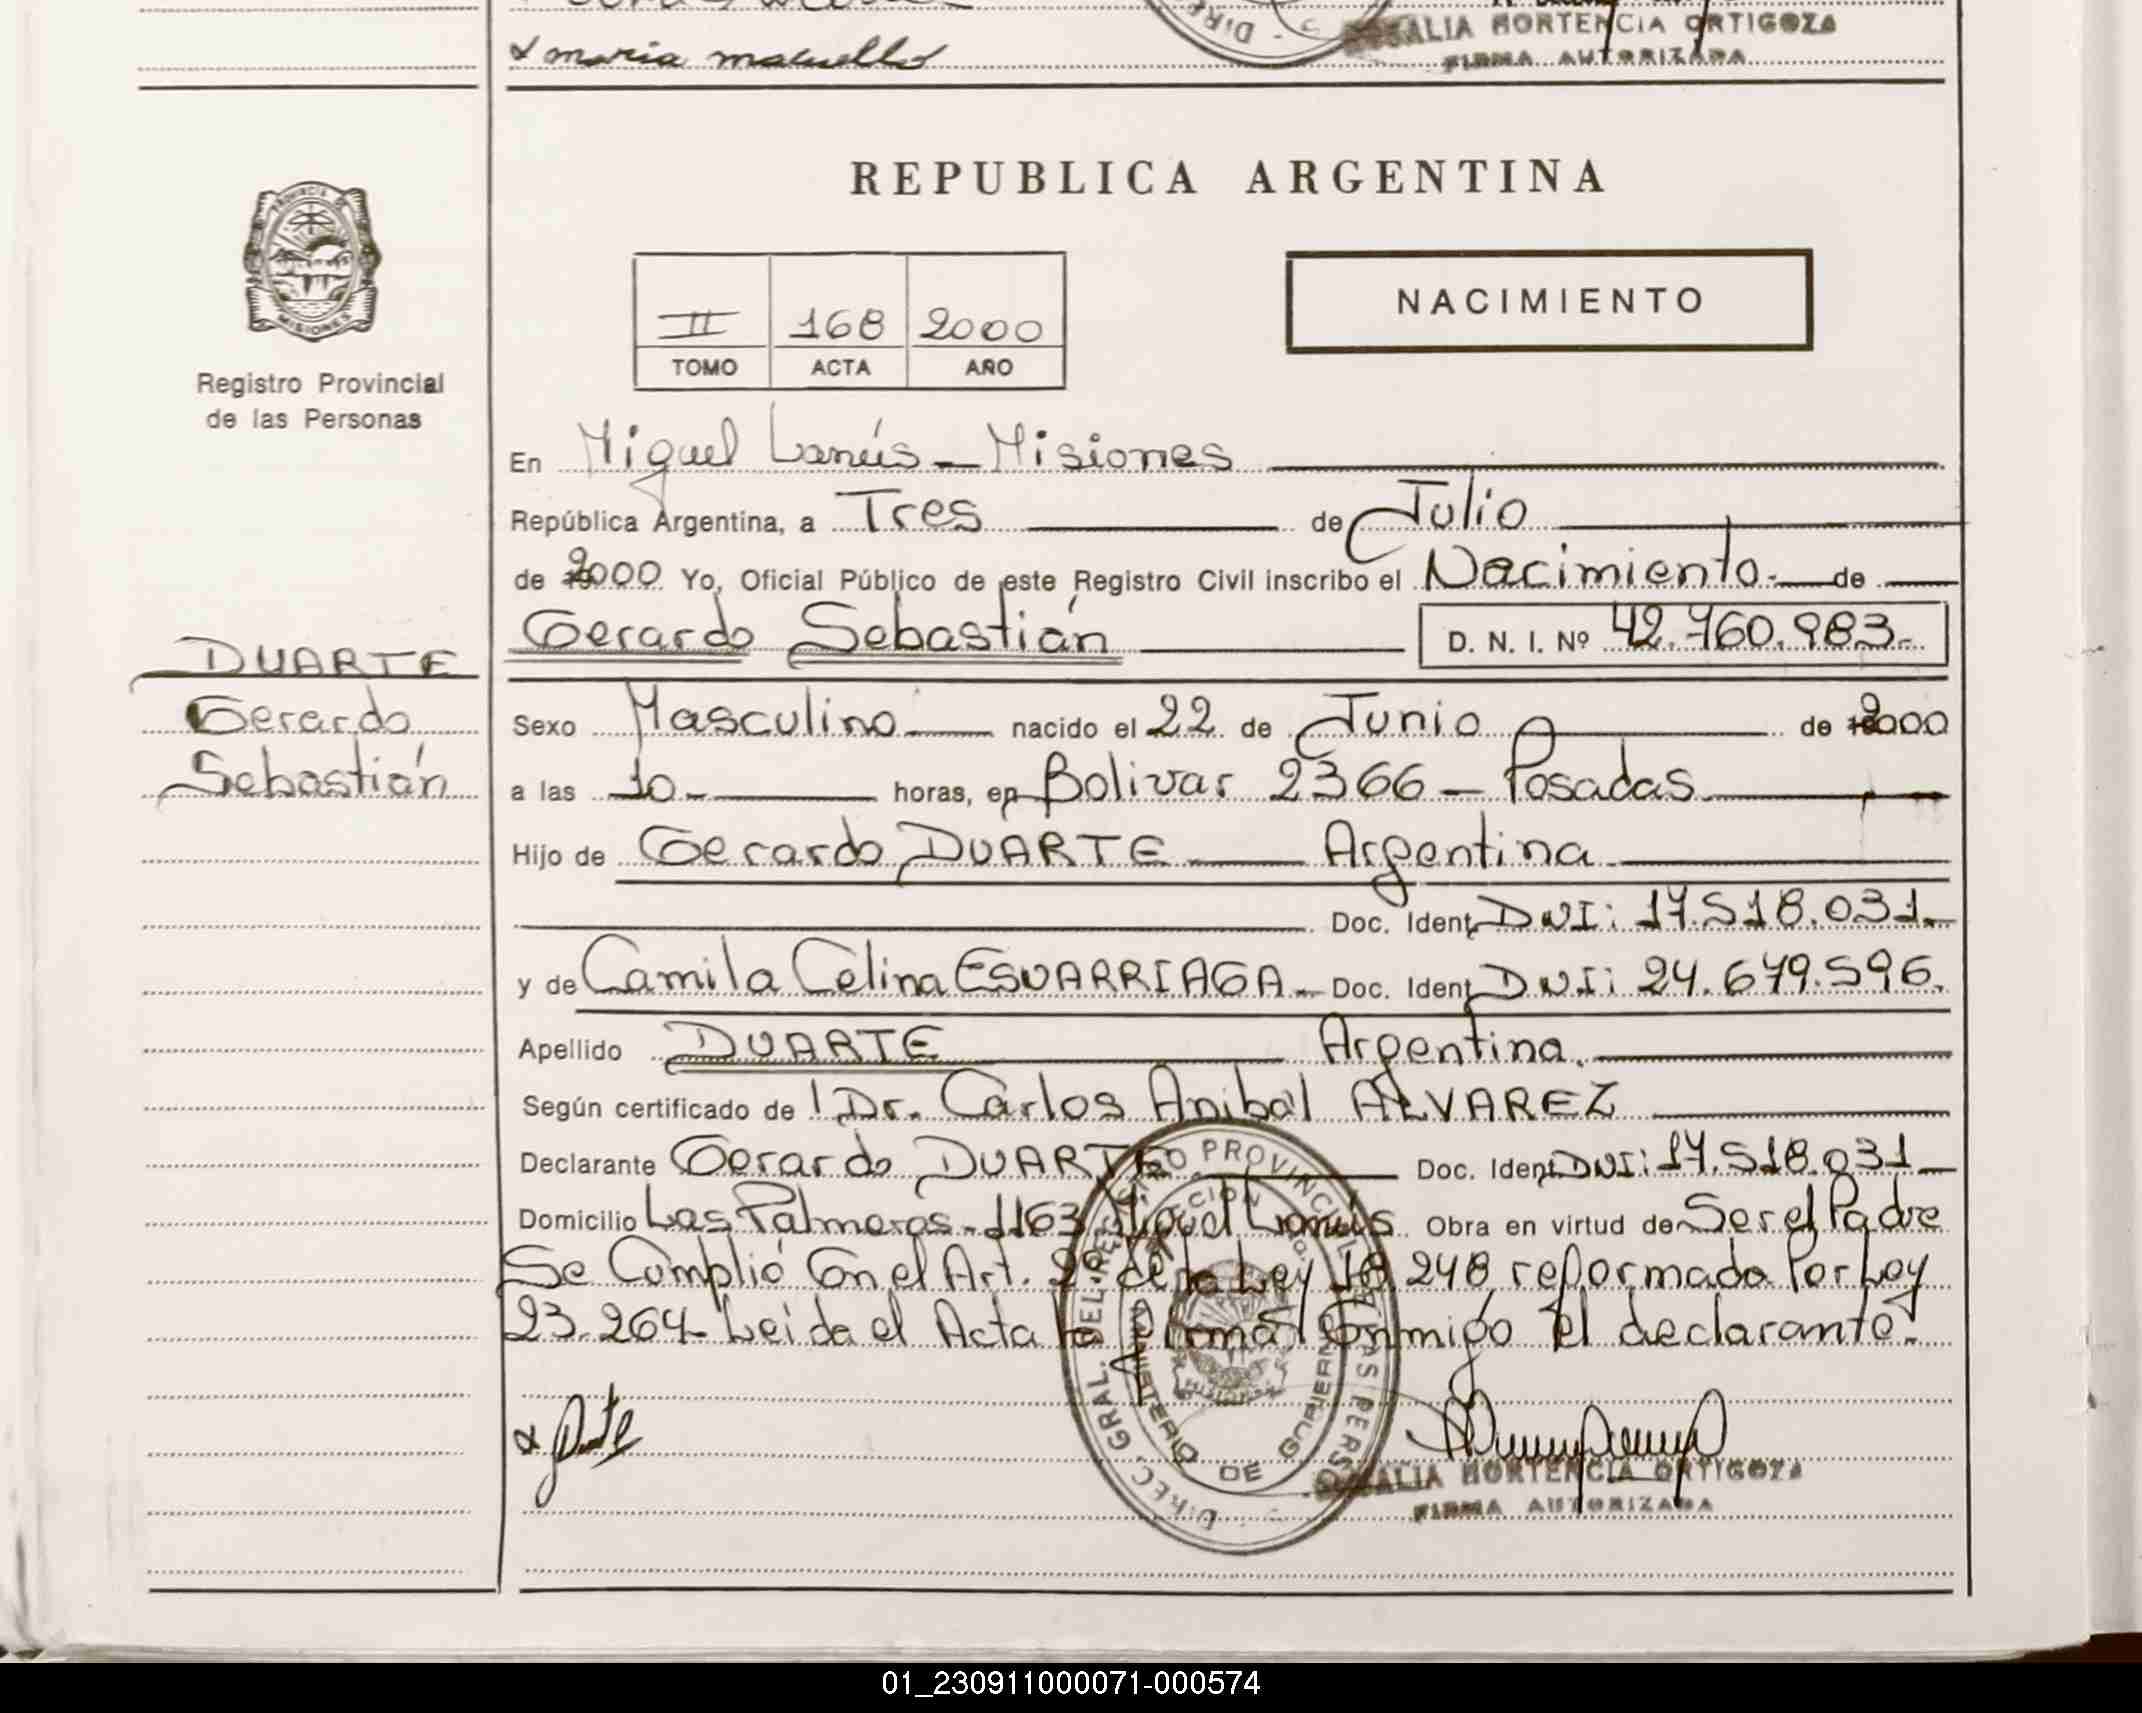 x maria maciello
ROSALIA HORTENCIA ORTIGOZA
FIRMA AUTORIZADA
REPUBLICA ARGENTINA
NACIMIENTO
II 168 2000
TOMO ACTA AÑO
PROVINCIA DE
MISIONES
Registro Provincial
de las Personas
En Miguel Lanús - Misiones
República Argentina, a Tres de Julio
de 2000 Yo, Oficial Público de este Registro Civil inscribo el Nacimiento.- de
Gerardo Sebastián D. N. I. Nº 42.760.983.-
DUARTE
Gerardo
Sebastián
Sexo Masculino nacido el 22 de Junio de 2000
a las 10.- horas, en Bolivar 2366 - Posadas
Hijo de Gerardo DUARTE Argentina
Doc. Ident. DNI: 17.518.031.
y de Camila Celina ESVARRIAGA - Doc. Ident. DNI: 24.679.596.
Apellido DUARTE Argentina.
Según certificado de Dr. Carlos Anibal ALVAREZ
Declarante Gerardo DUARTE Doc. Ident. DNI: 17.518.031
Domicilio Las Palmeras - 1163 Miguel Lanús Obra en virtud de Ser el Padre
Se Cumplió Con el Art. 2º de la Ley 18.248 reformada Por Ley
23.264- Leida el Acta la Firma Conmigo el declarante.
DIREC. GRAL. DEL REGISTRO PROVINCIAL DE LAS PERSONAS
MINISTERIO DE GOBIERNO
MISIONES
x Duarte
ROSALIA HORTENCIA ORTIGOZA
FIRMA AUTORIZADA
01_230911000071-000574